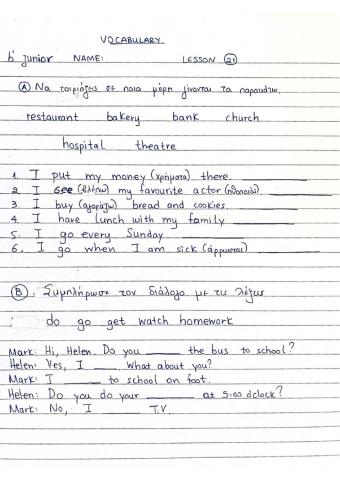 VOCABULARY
b' junior NAME: LESSON 21
A Να ταιριάξεις σε ποια μέρη γίνονται τα παρακάτω.
restaurant bakery bank church
hospital theatre
1. I put my money (χρήματα) there.
2 I see (βλέπω) my favourite actor (ηθοποιός)
3 I buy (αγοράζω) bread and cookies.
4. I have lunch with my family
5. I go every Sunday
6. I go when I am sick (άρρωστος)
B. Συμπλήρωσε τον διάλογο με τις λέξεις
do go get watch homework
Mark: Hi, Helen. Do you the bus to school?
Helen: Yes, I . What about you?
Mark: I to school on foot.
Helen: Do you do your at 5:00 o'clock?
Mark: No, I T.V.